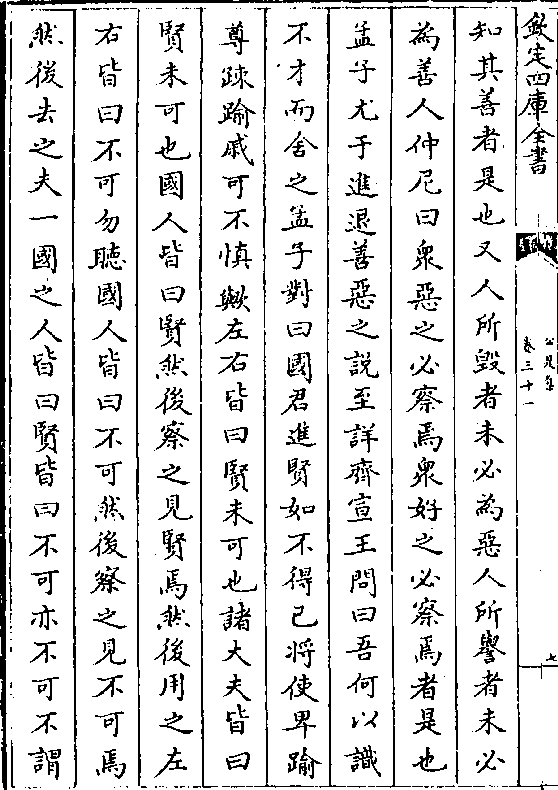 欽定四庫全書
卷三十一
七
知其善者是也又人所毀者未必為惡人所譽者未必
為善人仲尼曰衆惡之必察焉衆好之必察焉者是也
孟子尤于進退善惡之說至詳齊宣王問曰吾何以識
不才而舍之孟子對曰國君進賢如不得已將使卑踰
尊疎踰戚可不慎歟左右皆曰賢未可也諸大夫皆曰
賢未可也國人皆曰賢然後察之見賢焉然後用之左
右皆曰不可勿聽國人皆曰不可然後察之見不可焉
然後去之夫一國之人皆曰賢皆曰不可亦不可不謂